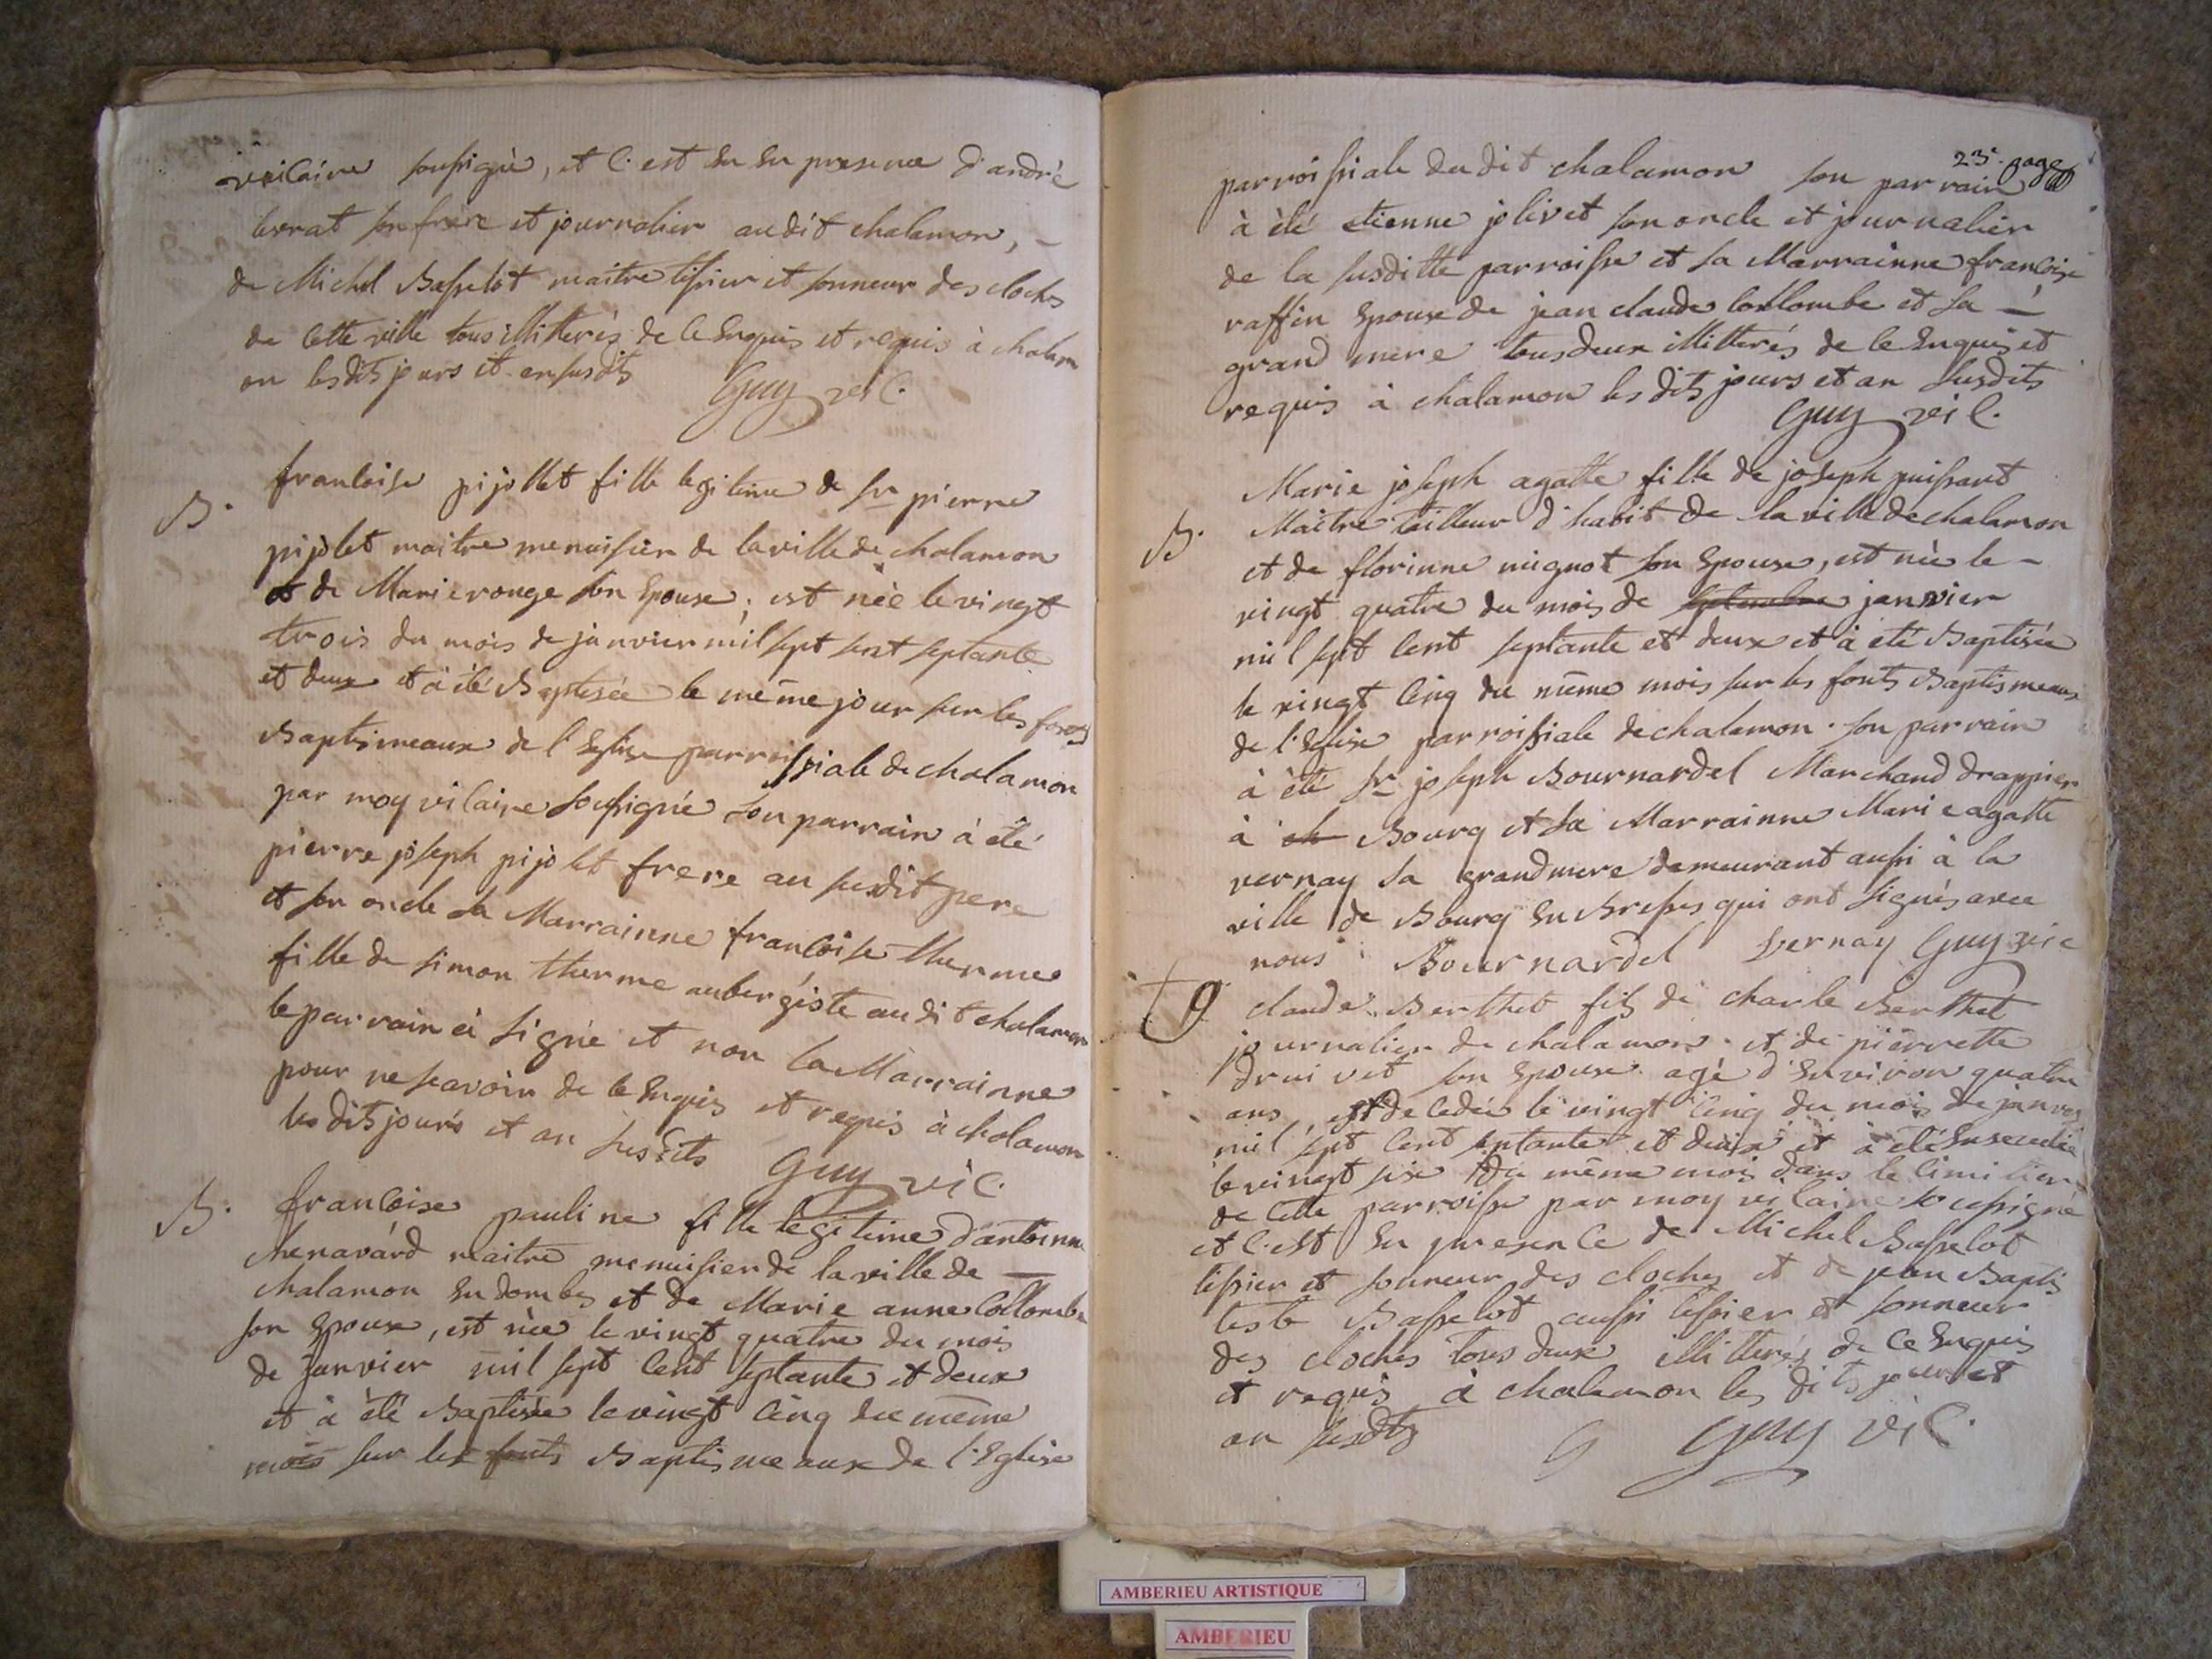 vicaire soussigné, et c'est en en presence d'andré
berrat son frere et journalier audit chalamon, -
de Michel Basselot maitre tissier et sonneur des cloches
de cette ville tous illitterés de ce enquis et requis à chalam
on lesdits jours et an susdits Guy vic.
B. francoise pijollet fille legitime de sr pierre
pijolet maitre menuisier de la ville de chalamon
et de Marie ronge son epouse, est née le vingt
trois du mois de janvier mil sept sent septante
et deux et à été Baptisée le même jour sur les fonts
Baptismeaux de l'Eglise parroissiale de chalamon
par moy vicaire soussigné son parrain à été
pierre joseph pijolet frere au susdit pere
et son oncle sa Marrainne francoise therme
fille de simon therme aubergiste audit chalamon
le parrain à signé et non la Marrainne
pour ne scavoir de ce enquis et requis à chalamon
les dits jours et an susdits Guy vic.
B. francoise pauline fille legitime d'antoinne
chenavard maitre menuisier de la ville de
chalamon en dombes et de Marie anne Collombe
son epouse, est née le vingt quatre du mois
de janvier mil sept cent septante et deux
et à été Baptisée le vingt cinq du même
mois sur les fonts Baptismeaux de l'Eglise
23e page
parroissiale dudit chalamon son parrain
à èté etienne jolivet son oncle et journalier
de la susditte parroisse et sa Marrainne francoise
raffin epouse de jean claude Collombe et sa -
grand mere tous deux illitterés de ce enquis et
requis à chalamon les dits jours et an susdits
Guy vic.
Marie joseph agatte fille de joseph puissant
B. Maitre tailleur d'habit de la ville de chalamon
et de florinne mignot son epouse, est née le -
vingt quatre du mois de septembre janvier
mil sept cent septante et deux et à été Baptisée
le vingt cinq du même mois sur les fonts Baptismeaux
de l'Eglise parroissiale de chalamon. son parrain
à èté sr joseph Bournardel Marchand drappier
à ch Bourg et sa Marrainne Marie agatte
vernay sa grandmere demeurant aussi à la
ville de Bourg en Bresses qui ont signés avec
nous Bournardel Vernay Guy vic
claude Berthet fils de charle Berthet
journalier de chalamon et de pierrette
druivet son epouse agé d'environ quatre
ans, est decedée le vingt cinq du mois de janvier
mil sept cent septante et deux et à été Ensevelie
le vingt six du même mois dans le cimitiere
de cette parroisse par moy vicaire soussigné
et c'est en presence de Michel Basselot
tissier et sonneur des cloches et de jean Baptis
teste Basselot aussi tissier et sonneur
des cloches tous deux illitterés de ce enquis
et requis à chalamon les dits jours et
an susdits Guy vic.
AMBERIEU ARTISTIQUE
AMBERIEU